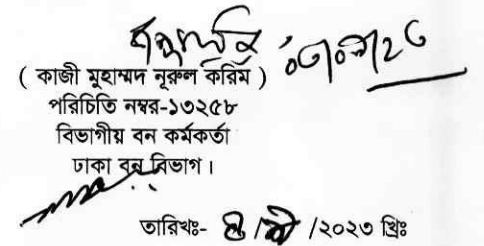 ( কাজী মুহাম্মদ নূরুল করিম )
পরিচিতি নম্বর-১৩২৫৮
বিভাগীয় বন কর্মকর্তা
ঢাকা বন বিভাগ।
তারিখঃ- /২০২৩ খ্রিঃ